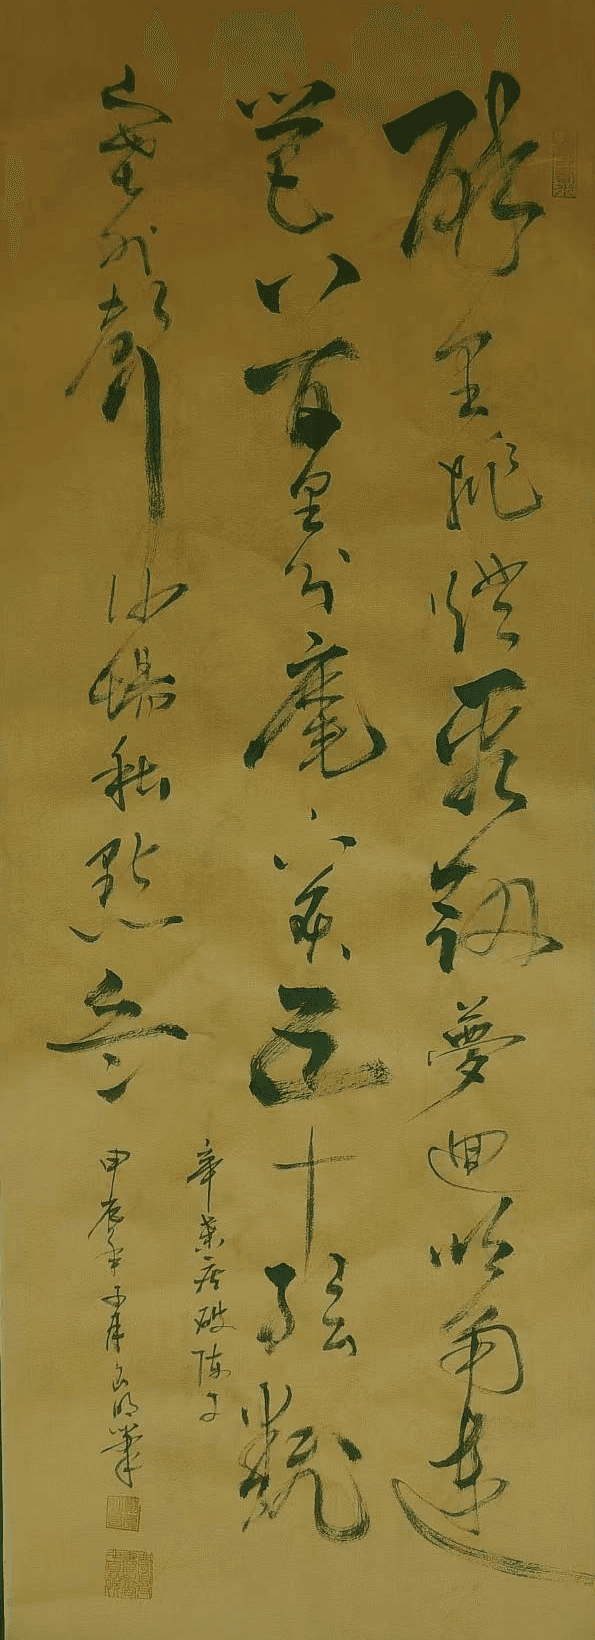 醉里挑燈看劍夢迴吹角連
營八百里分麾下炙五十弦翻
塞外聲沙場秋點兵
辛棄疾破陣子
甲辰年子月明筆